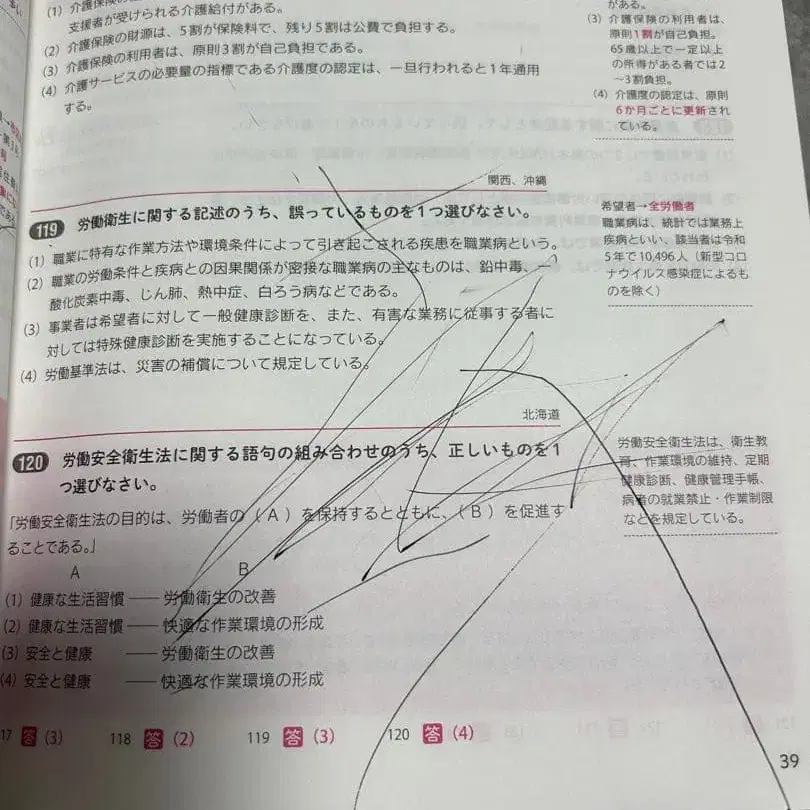 (1) 介護保
支援者が受けられる介護給付がある。
(2) 介護保険の財源は、5割が保険料で、残り5割は公費で負担する。
(3) 介護保険の利用者は、原則3割が自己負担である。
(4) 介護サービスの必要量の指標である介護度の認定は、一旦行われると1年通用
する。
がある。
(3) 介護保険の利用者は、
原則1割が自己負担。
65歳以上で一定以上
の所得がある者では2
～3割負担。
(4) 介護度の認定は、原則
6か月ごとに更新され
ている。
関西、沖縄
119 労働衛生に関する記述のうち、誤っているものを1つ選びなさい。
(1) 職業に特有な作業方法や環境条件によって引き起こされる疾患を職業病という。
(2) 職業の労働条件と疾病との因果関係が密接な職業病の主なものは、鉛中毒、一
酸化炭素中毒、じん肺、熱中症、白ろう病などである。
(3) 事業者は希望者に対して一般健康診断を、また、有害な業務に従事する者に
対しては特殊健康診断を実施することになっている。
(4) 労働基準法は、災害の補償について規定している。
希望者→全労働者
職業病は、統計では業務上
疾病といい、該当者は令和
5年で10,496人（新型コロ
ナウイルス感染症によるも
のを除く）
北海道
120 労働安全衛生法に関する語句の組み合わせのうち、正しいものを1
つ選びなさい。
「労働安全衛生法の目的は、労働者の（ A ）を保持するとともに、（ B ）を促進す
ることである。」
A B
(1) 健康な生活習慣 ―― 労働衛生の改善
(2) 健康な生活習慣 ―― 快適な作業環境の形成
(3) 安全と健康 ―― 労働衛生の改善
(4) 安全と健康 ―― 快適な作業環境の形成
労働安全衛生法は、衛生教
育、作業環境の維持、定期
健康診断、健康管理手帳、
病者の就業禁止・作業制限
などを規定している。
17 答 (3) 118 答 (2) 119 答 (3) 120 答 (4)
39